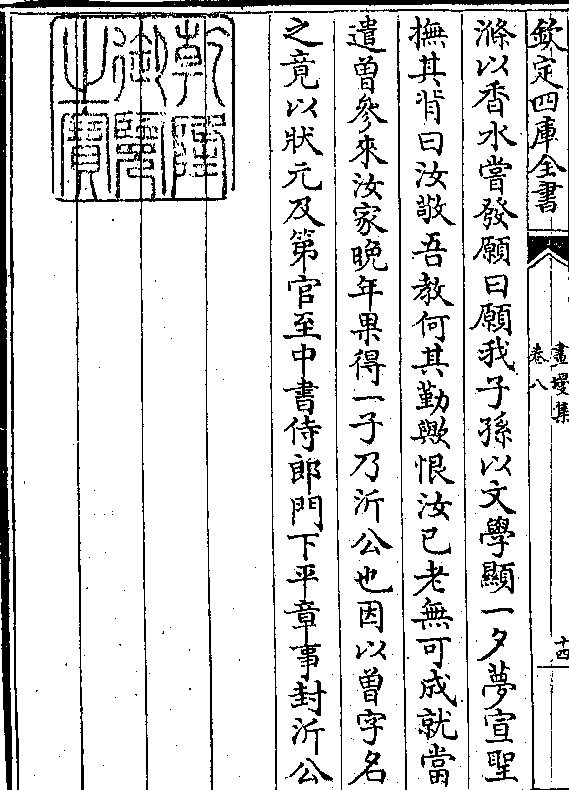 欽定四庫全書
畫墁集
卷八
十四
滌以香水嘗發願曰願我子孫以文學顯一夕夢宣聖
撫其背曰汝敬吾教何其勤歟恨汝已老無可成就當
遣曾參來汝家晚年果得一子乃沂公也因以曾字名
之竟以狀元及第官至中書侍郎門下平章事封沂公
乾隆
御覽
之寶